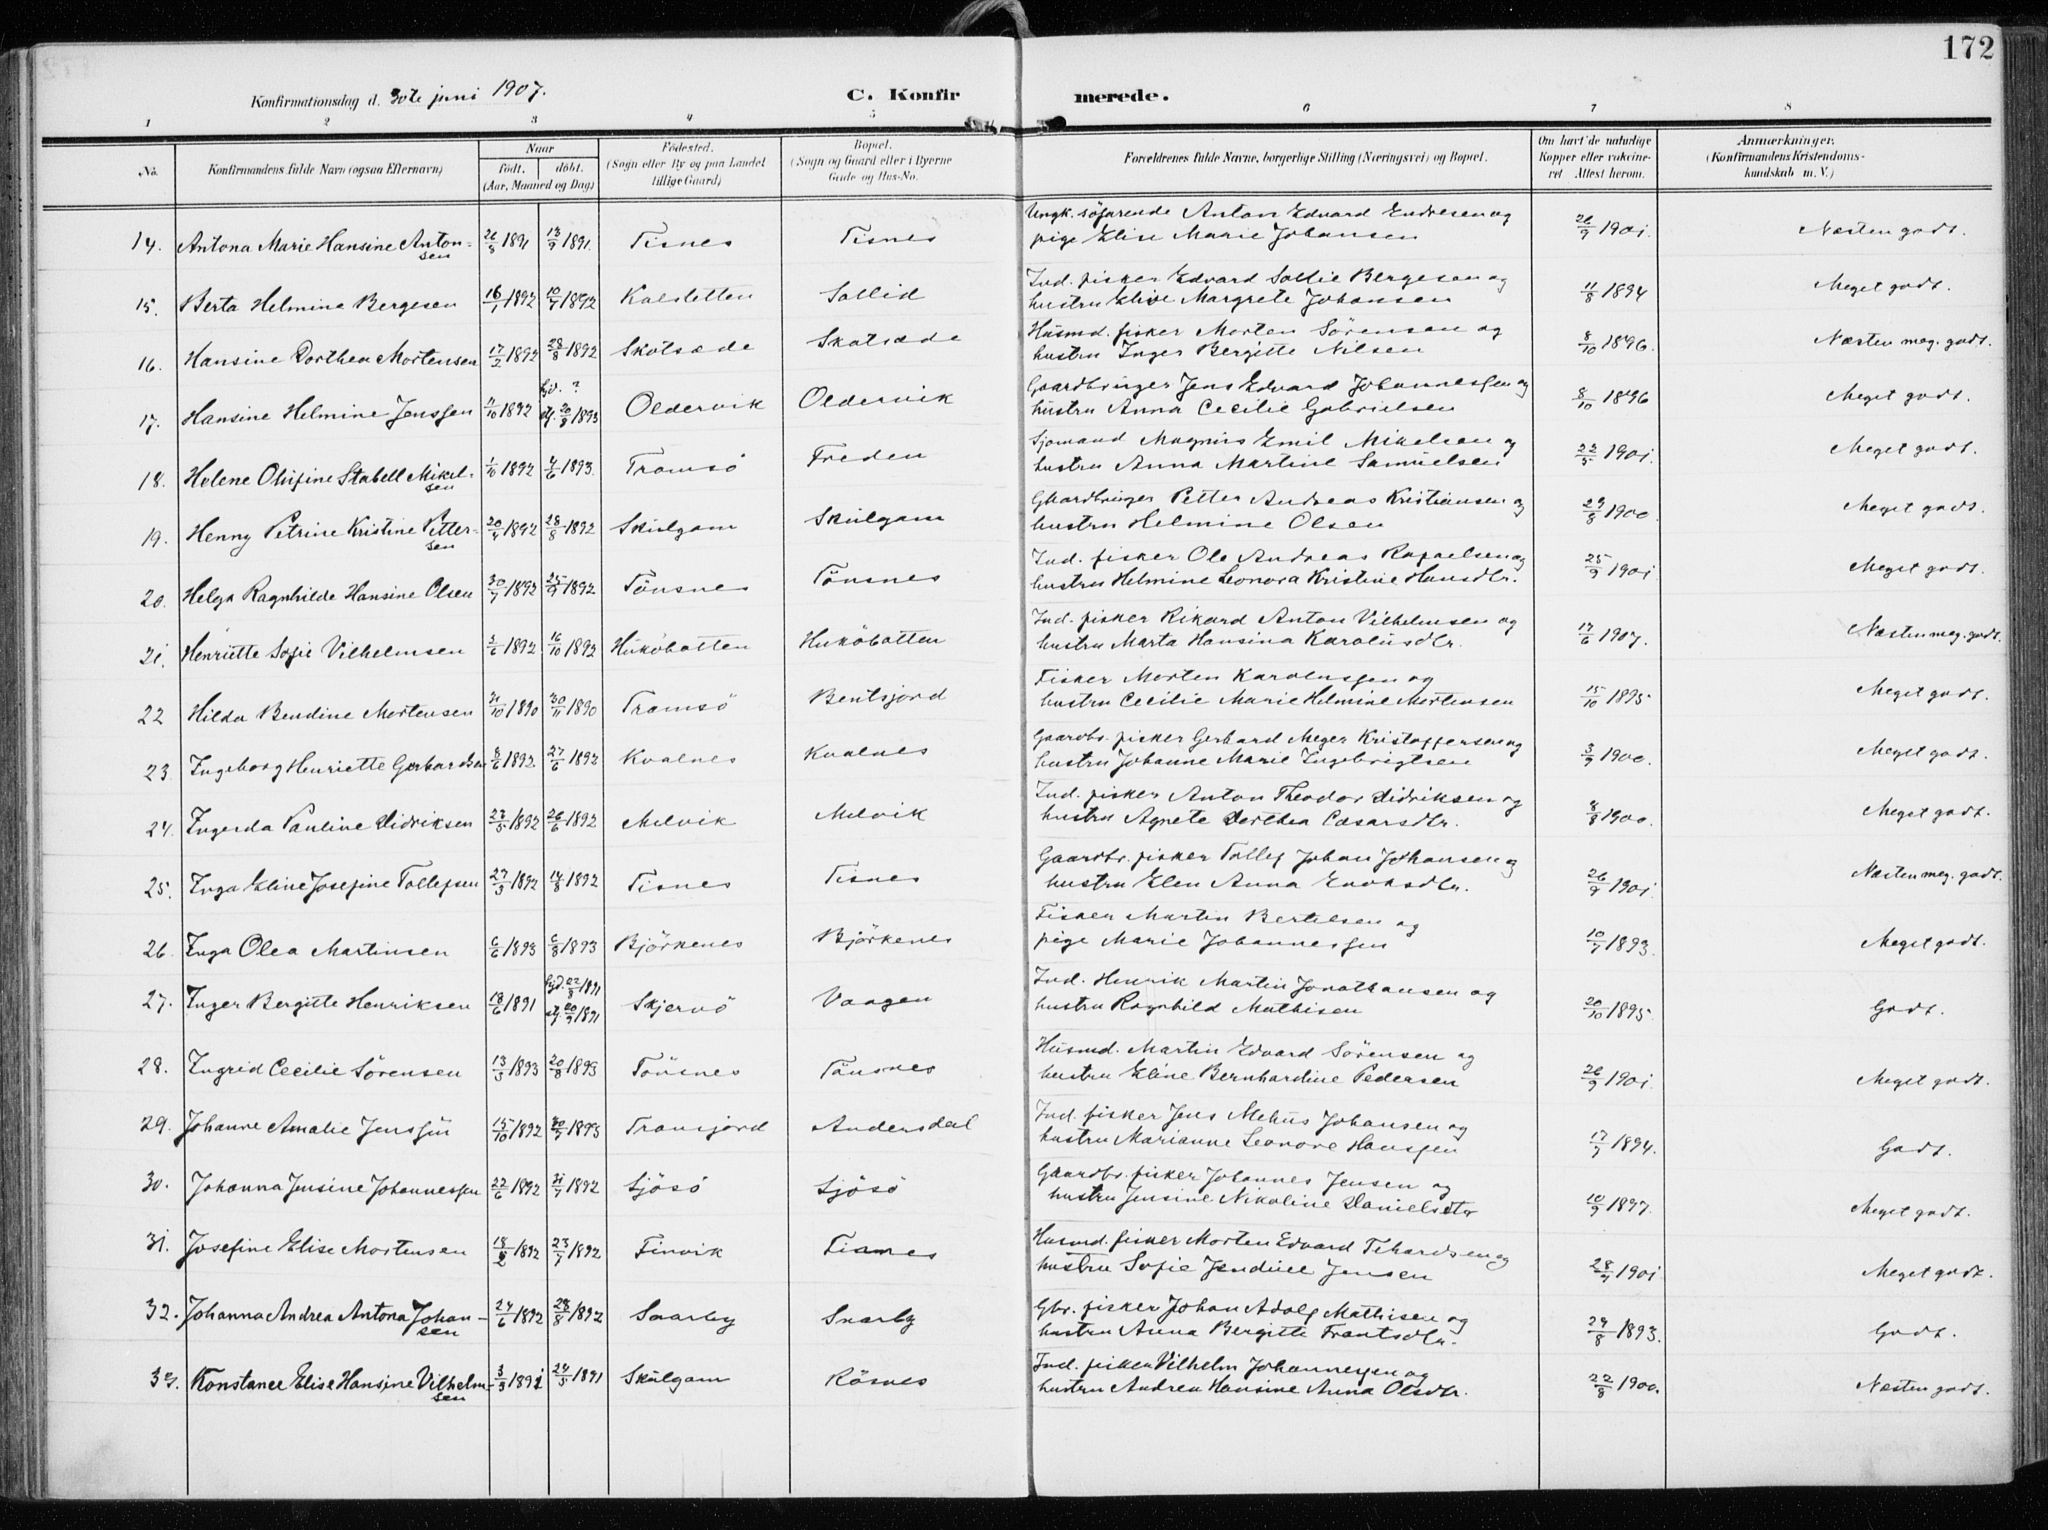 172
Konfirmationsdag d. 30te juni 1907. C. Konfirmerede.
1 2 3 4 5 6 7 8
No. Konfirmandens fulde Navn (ogsaa Efternavn) Naar født. døbt. (Aar, Maaned og Dag) Fødested. (Sogn eller By og paa Landet tillige Gaard) Bopæl. (Sogn og Gaard eller i Byerne Gade og Hus-No. Forældrenes fulde Navne, borgerlige Stilling (Næringsvei) og Bopæl. Om havt de naturlige Kopper eller vakcineret Attest herom. Anmærkninger. (Konfirmandens Kristendomskundskab m. V.)
14. Antona Marie Hansine Antonsen 26/8 1891 13/9 1891. Tisnes Tisnes Ungk. söfarende Anton Edvard Endresen og
pige Elise Marie Johansen 26/9 1901. Næsten godt.
15. Berta Helmina Bergesen 16/1 1892 10/7 1892 Kalsletten Sollid Ind. fisker Edvard Sollie Bergesen og
hustru Elive Margrete Johansen 11/8 1894 Meget godt.
16. Hansine Dorthea Mortensen 17/2 1892 28/8 1892 Skotsæde Skotsæde Husmd. fisker Morten Sörensen og
hustru Inger Bergitte Nilsen 8/10 1896. Næsten meg. godt.
17. Hansine Helmine Jenssen 11/10 1892 hjd. ? st. 20/8 1893 Oldervik Oldervik Gaardbruger Jens Edvard Johannessen og
hustru Anna Cecilie Gabrielsen 8/10 1896 Meget godt.
18. Helene Olufine Stabell Mikelsen 1/10 1892 4/6 1893. Tromsö Freden Sjömand Magnus Emil Mikelsen og
hustru Anna Martine Samuelsen 22/5 1901. Meget godt.
19. Henny Petrine Kristine Pettersen 20/4 1892 28/8 1892 Skulgam Skulgam Gaardbruger Petter Andreas Kristiansen og
hustru Helmine Olsen 29/8 1900. Meget godt.
20. Helga Ragnhilde Hansine Olsen 30/7 1892 25/9 1892 Tönsnes Tönsnes Ind. fisker Ole Andreas Rafaelsen og
hustru Helmine Leonora Kristine Hansdtr. 25/9 1901 Meget godt.
21. Henriette Sofie Vilhelmsen 2/6 1892 16/10 1892 Huköbotten Huköbotten Ind. fisker Rikard Anton Vilhelmsen og
hustru Marta Hansina Karolusdtr. 17/6 1907. Næsten meg. godt.
22 Hilda Bendine Mortensen 31/10 1890 30/11 1890 Tromsö Bentsjord Fisker Morten Karolussen og
hustru Cecilie Marie Helmine Mortensen 15/10 1895 Meget godt.
23. Ingeborg Henriette Gerhardsen 8/6 1892 27/6 1892 Kvalnes Kvalnes Gaardbr. fisker Gerhard Meyer Kristoffersen og
hustru Johanne Marie Ingebrigtsen 3/9 1900. Meget godt.
24. Ingerda Pauline Didriksen 27/5 1892 26/6 1892 Melvik Melvik Ind. fisker Anton Theodor Didriksen og
hustru Agnete Dorthea Cæsarsdtr. 8/8 1900. Meget godt.
25. Inga Eline Josefine Tollefsen 27/3 1892 14/8 1892 Tisnes Tisnes Gaardbr. fisker Tollef Johan Johansen og
hustru Elen Anna Enoksdtr. 26/9 1901 Næsten meg. godt.
26. Inga Olea Martinsen 6/6 1893 6/8 1893 Björkenes Björkenes Fisker Martin Bertelsen og
pige Marie Johannessen 10/7 1893. Meget godt.
27. Inger Bergitte Henriksen 18/6 1891 hjd. 22/8 1891 st. 20/9 1891 Skjervö Vaagen Ind. Henrik Martin Jonathansen og
hustru Ragnhild Mathisen 20/10 1895. Godt.
28. Ingrid Cecilie Sörensen 13/3 1893 20/8 1893 Tönsnes Tönsnes Husmd. Martin Edvard Sörensen og
hustru Eline Bernhardine Pedersen 26/9 1901. Meget godt.
29. Johanne Amalie Jenssen 15/10 1892 30/7 1893 Tromsjord Andersdal Ind. fisker Jens Mehus Johansen og
hustru Marianne Leonore Hanssen 17/7 1894. Godt.
30. Johanna Jensine Johannessen 22/6 1892 31/7 1892 Sjösö Sjösö Gaardbr. fisker Johannes Jensen og
hustru Jensine Nikoline Danielsdtr 10/9 1897. Meget godt.
31. Josefine Elise Mortensen 18/2 1892 23/7 1892 Finvik Tisnes Husmd. fisker Morten Edvard Tehardsen og
hustru Sofie Jendine Jensen 28/9 1901 Meget godt.
32. Johanna Andrea Antona Johansen 24/6 1892 28/8 1892 Snarby Snarby Gbr. fisker Johan Adolf Mathisen og
hustru Anna Bergitte Frantsdtr. 29/8 1893. Godt.
33. Konstance Elise Hansine Vilhelmsen 3/3 1891 24/5 1891 Skulgam Rösnes Ind. fisker Vilhelm Johannessen og
hustru Andrea Hansine Anna Olsdtr. 22/8 1900. Næsten godt.